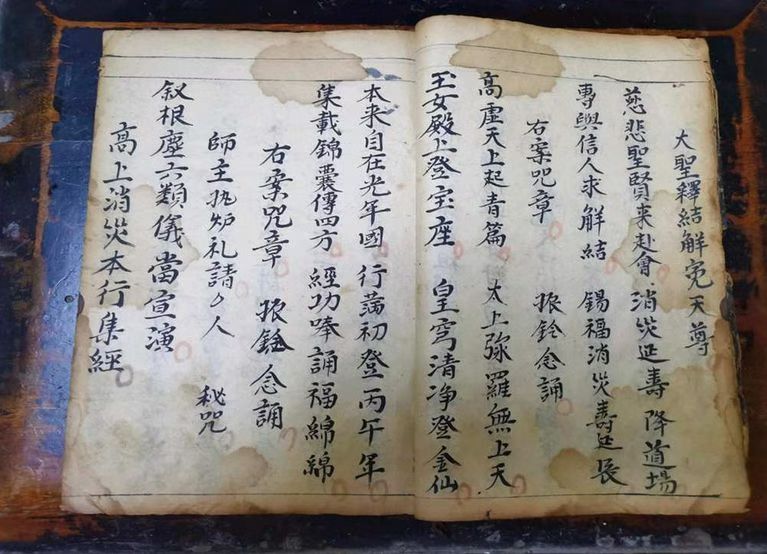 大聖釋結解冤天尊
慈悲聖賢来赴會 消災延壽降道場
專與信人求解結 錫福消災壽延長
右案咒章 振鈴念誦
高虛天上起青篇 太上弥羅無上天
玉女殿上登宝座 皇穹清净登金仙
本来自在光年國 行滿初登丙午年
集載錦囊傳四方 經功奉誦福綿綿
右案咒章 振鈴念誦
師主执炉礼請 人 秘咒
叙根塵六類儀當宣演
高上消災本行集經